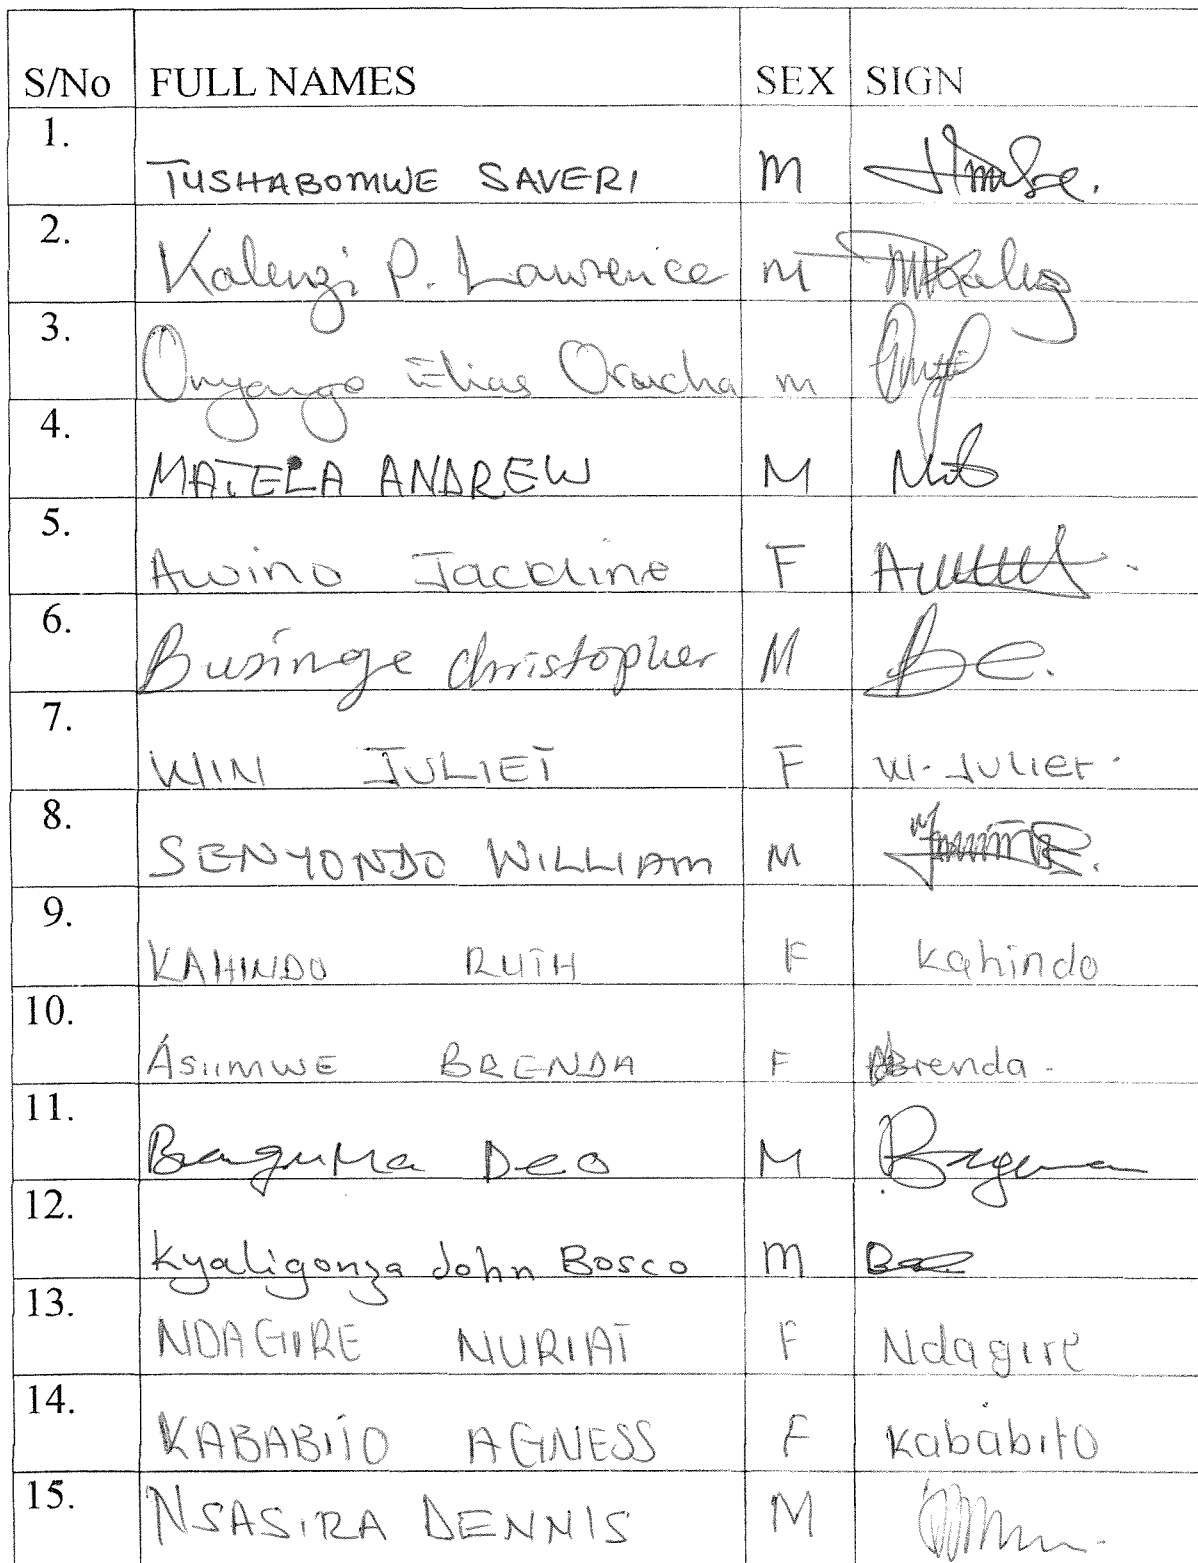 S/No FULL NAMES SEX SIGN
1. TUSHABOMWE SAVERI M
2. Kalenzi P. Lawrence M
3. Onyango Elias Oracha m
4. MATELA ANDREW M
5. Awino Jackline F
6. Businge Christopher M
7. WIN JULIET F W. Juliet.
8. SENYONDO WILLIAM M
9. KAHINDO RUTH F Kahindo
10. ASIIMWE BRENDA F Brenda.
11. Baguma Deo M Baguma
12. Kyaligonza John Bosco M
13. NDAGIRE NURIAT F Ndagire
14. KABABITO AGNESS F Kababito
15. NSASIRA DENNIS M